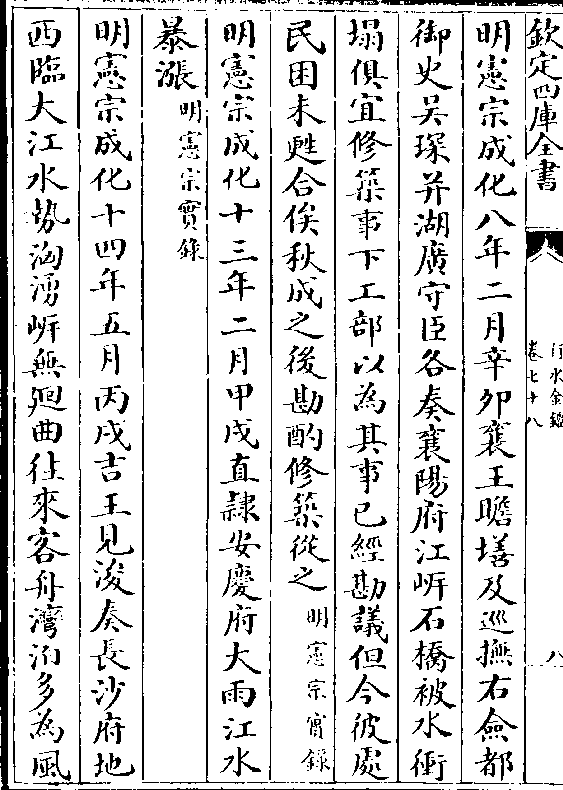 欽定四庫全書
行水金鑑
卷七十八
八
明憲宗成化八年二月辛卯襄王瞻墡及巡撫右僉都
御史吳琛并湖廣守臣各奏襄陽府江㟁石橋被水衝
塌俱宜修築事下工部以為其事已經勘議但今彼處
民困未甦合俟秋成之後勘酌修築從之明憲宗實錄
明憲宗成化十三年二月甲戌直隷安慶府大雨江水
暴漲明憲宗實錄
明憲宗成化十四年五月丙戌吉王見浚奏長沙府地
西臨大江水勢洶湧㟁無廻曲往來客舟灣泊多為風